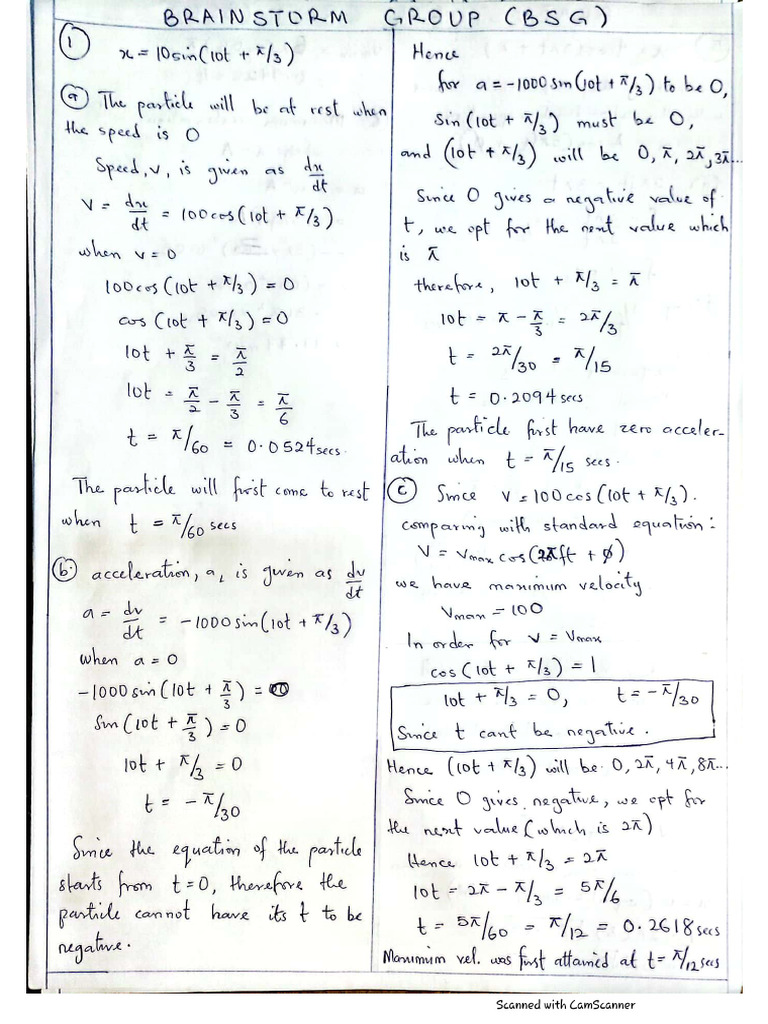 BRAINSTORM GROUP (BSG)
① x = 10sin(10t + π/3)
ⓐ The particle will be at rest when
the speed is 0
Speed, v, is given as dx/dt
V = dx/dt = 100cos(10t + π/3)
when v = 0
100cos(10t + π/3) = 0
cos(10t + π/3) = 0
10t + π/3 = π/2
10t = π/2 - π/3 = π/6
t = π/60 = 0.0524secs.
The particle will first come to rest
when t = π/60 secs
ⓑ acceleration, a, is given as dv/dt
a = dv/dt = -1000sin(10t + π/3)
when a = 0
-1000sin(10t + π/3) = 0
Sin(10t + π/3) = 0
10t + π/3 = 0
t = -π/30
Since the equation of the particle
starts from t=0, therefore the
particle cannot have its t to be
negative.
Hence
for a = -1000sin(10t + π/3) to be 0,
Sin(10t + π/3) must be 0,
and (10t + π/3) will be 0, π, 2π, 3π...
Since 0 gives a negative value of
t, we opt for the next value which
is π
therefore, 10t + π/3 = π
10t = π - π/3 = 2π/3
t = 2π/30 = π/15
t = 0.2094secs
The particle first have zero acceler-
ation when t = π/15 secs.
ⓒ Since v = 100cos(10t + π/3).
comparing with standard equation:
V = Vmax cos(2πft + φ)
we have maximum velocity
Vmax = 100
In order for V = Vmax
cos(10t + π/3) = 1
10t + π/3 = 0, t = -π/30
Since t cant be negative.
Hence (10t + π/3) will be 0, 2π, 4π, 8π...
Since 0 gives negative, we opt for
the next value (which is 2π)
Hence 10t + π/3 = 2π
10t = 2π - π/3 = 5π/6
t = 5π/60 = π/12 = 0.2618secs
Maximum vel. was first attained at t = π/12 secs
Scanned with CamScanner